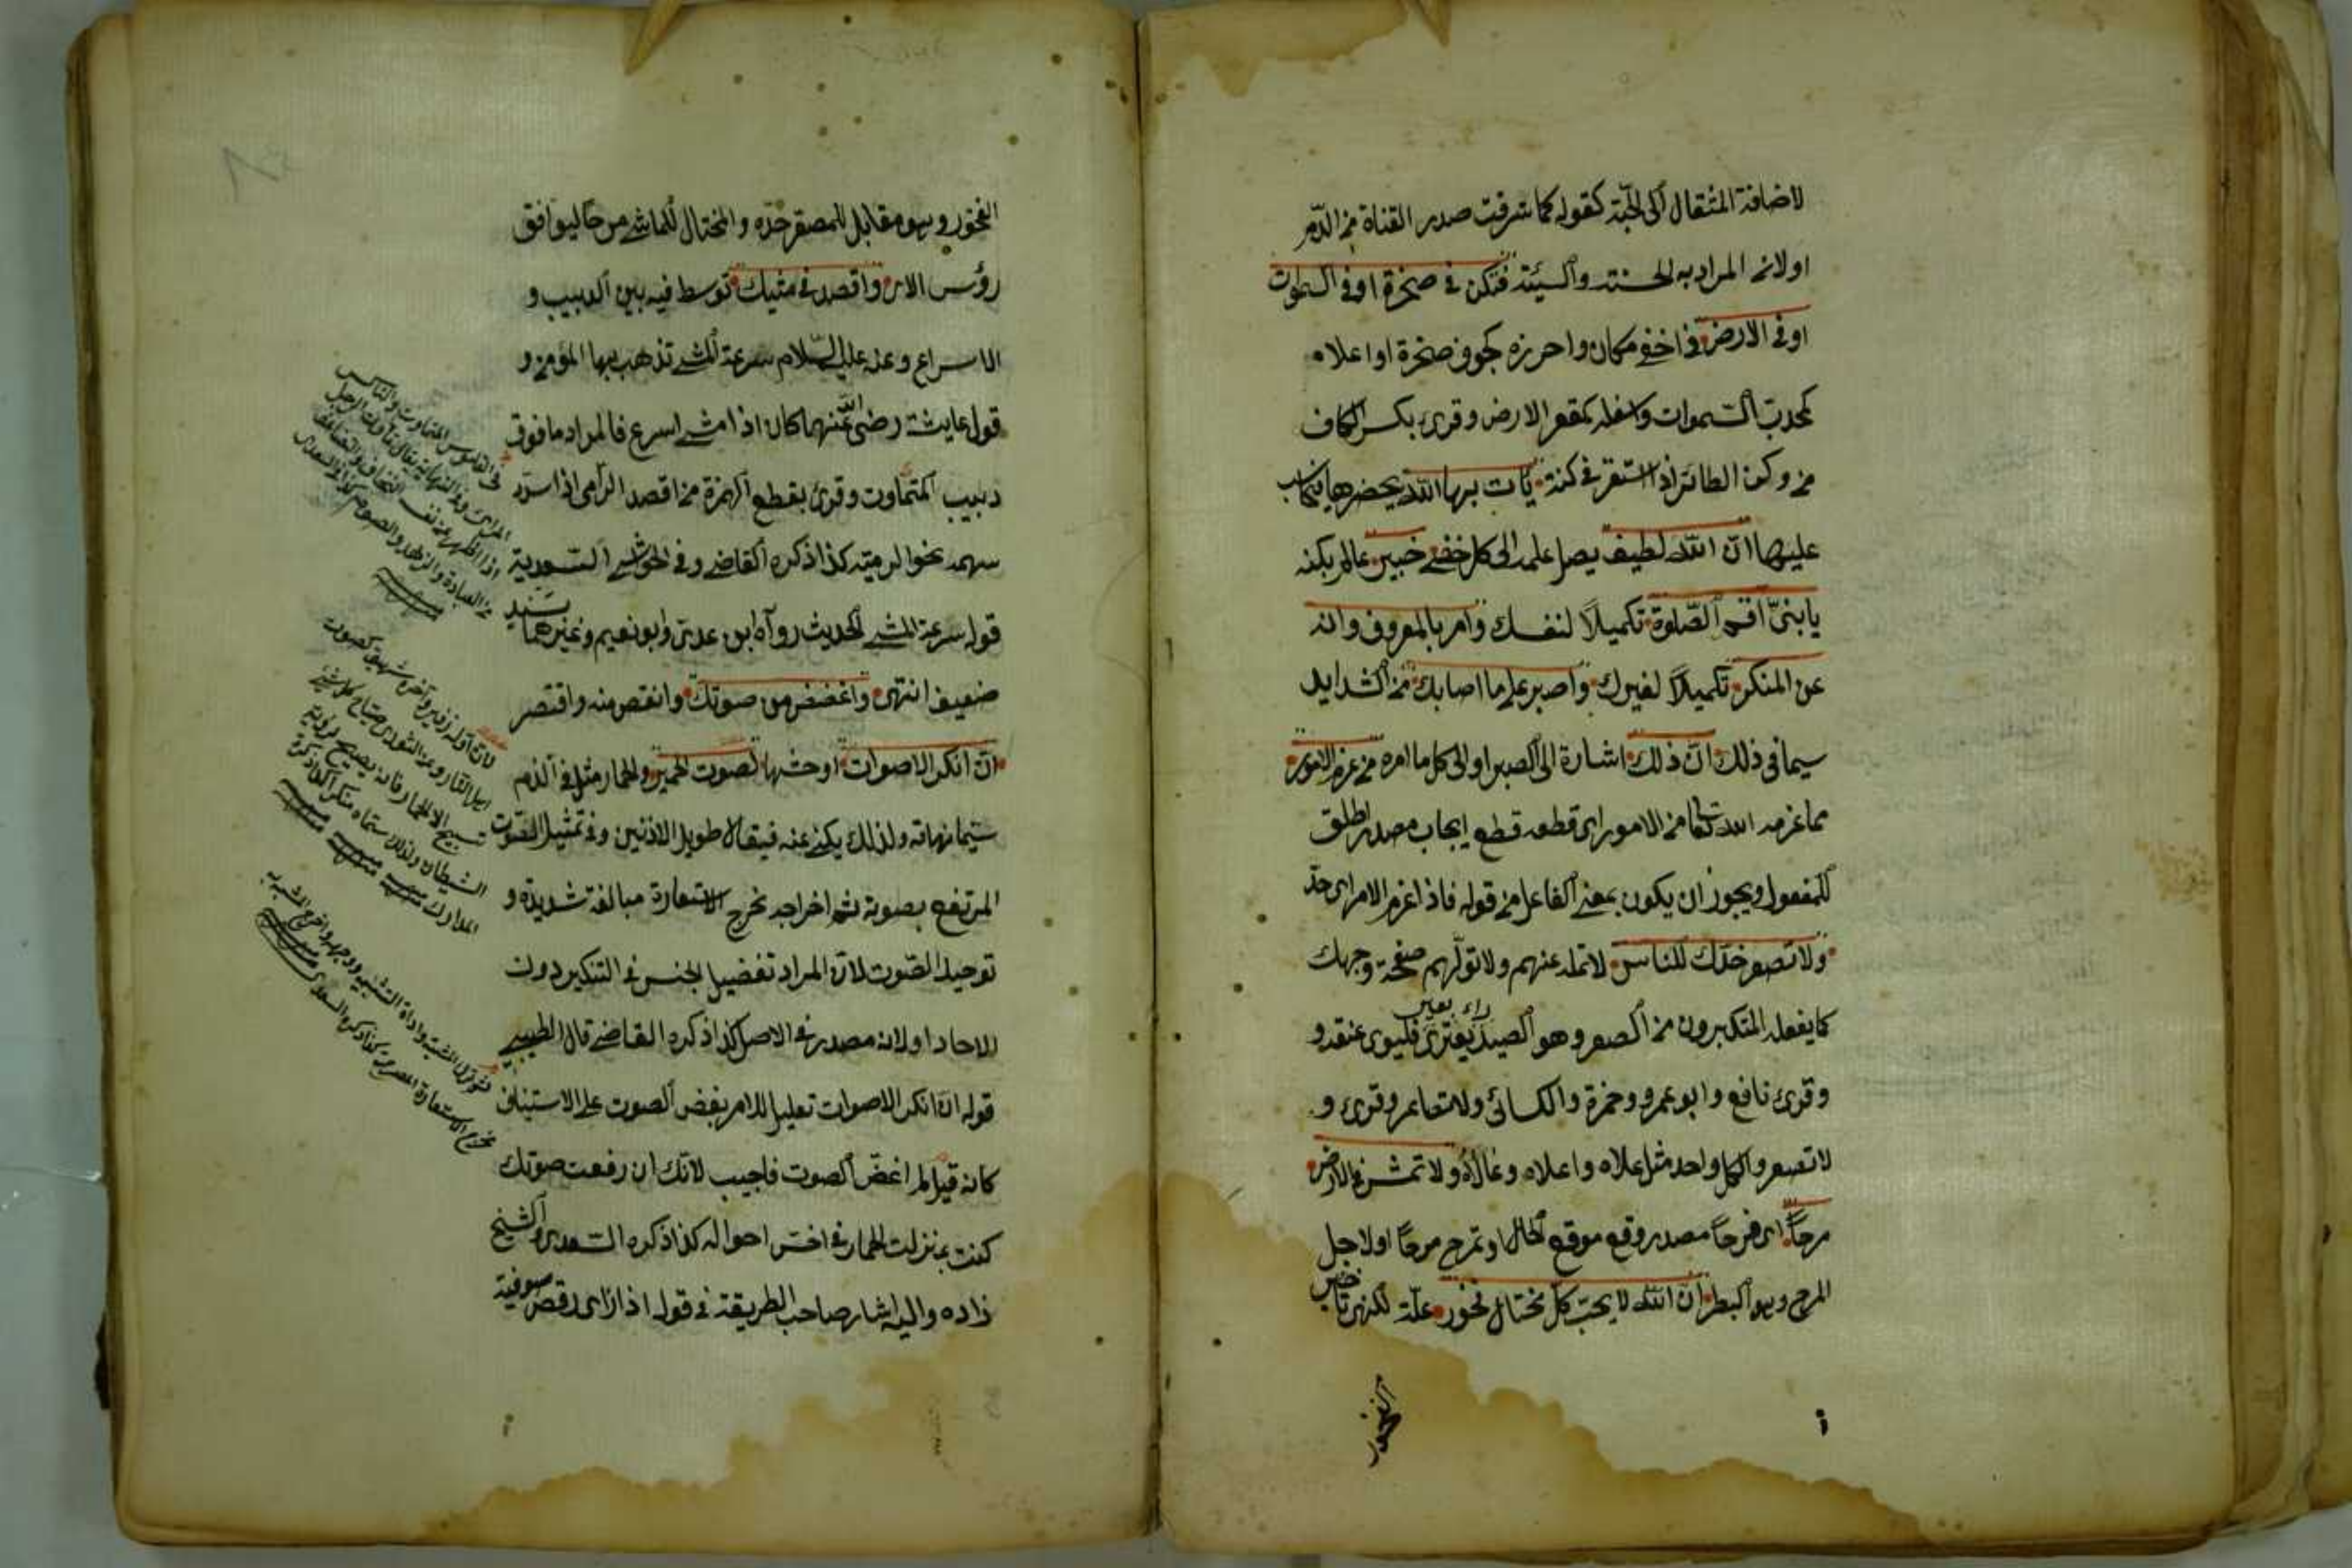 لاضافة المثقال الى الحبة كقوله كما شرقت صدر القناة من الدم
او لان المراد به الحسنة والسيئة فتكن في صخرة او في السموات
او في الارض في اخفى مكان واحرزه كجوف صخرة او اعلاه
كمحدب السموات واسفله كمقعر الارض وقرئ بكسر الكاف
من وكن الطائر اذا استقر في كنة يأت بها الله يحضرها فيحاسب
عليها ان الله لطيف يصل علمه الى كل خفى خبير عالم بكنه
يا بنىّ اقم الصّلوة تكميلاً لنفسك وأمر بالمعروف وانه
عن المنكر تكميلاً لغيرك واصبر على ما اصابك من الشدايد
سيما فى ذلك ان ذلك اشارة الى الصبر او الى كل ما امره من عزم الامور
مما عزمه الله تعا من الامور اى قطعه قطع ايجاب مصدر اطلق
للمفعول ويجوز ان يكون بمعنى الفاعل من قوله فاذا عزم الامر اى جدّ
ولا تصعر خدك للناس لا تمله عنهم ولا تولهم صفحة وجهك
كما يفعله المتكبرون من الصعر وهو الصيد داء يعترى بعير فليوى عنقه و
وقرئ نافع وابو عمرو وحمزة والكسائى ولا تصاعر وقرئ و
لا تصعر والكل واحد مثل علاه واعلاه وعالاه ولا تمش فى الارض
مرحاً اى فرحاً مصدر وقع موقع الحال او تمرح مرحاً او لاجل
المرح وهو البطر ان الله لا يحب كل مختال فخور علة للنهى تاخير
الفخور
الفخور وهو مقابل للمصعر خده والمختال للماشى مرحاً ليوافق
رؤس الاى واقصد فى مشيك توسط فيه بين الدبيب و
الاسراع وعنه عليه السّلام سرعة المشى تذهب بها المؤمن و
قول عايشة رضى الله عنهما كان اذا مشى اسرع فالمراد ما فوق
دبيب المتماوت وقرئ بقطع الهمزة من اقصد الرامى اذا سدّد
سهمه نحو الرمية كذا ذكره القاضى وفى الحواشى السّعدية
قوله سرعة المشى الحديث رواه ابن عدى وابو نعيم وغيرهما بسند
ضعيف انتهى واغضض من صوتك وانقص منه واقتصر
ان انكر الاصوات اوحشها لصوت الحمير والحمار مثل فى الذم
سيّما نهاقه ولذلك يكنى عنه فيقال طويل الاذنين وفى تمثيل الصّوت
المرتفع بصوته ثم اخراجه مخرج الاستعارة مبالغة شديدة و
توحيد الصّوت لان المراد تفضيل الجنس فى النكير دون
الاحاد او لانه مصدر فى الاصل كذا ذكره القاضى قال الطيبى
قوله ان انكر الاصوات تعليل للامر بغض الصوت على الاستيناف
كانه قيل لم اغضّ الصوت فاجيب لانك ان رفعت صوتك
كنت بمنزلة الحمار فى اخسّ احواله كذا ذكره السّعدى والشيخ
زاده واليه اشار صاحب الطريقة فى قوله اذا راى رقص صوفية
فى القاموس المتماوت والناسك
المرائى وفى النهاية يقال تماوت الرجل
اذا اظهر من نفسه التخافت والتضاعف
من العبادة والزهد والصوم كذا فى السعدى
لان اوله زفير وآخره شهيق كصوت
اهل النار وعن الثورى صياح كل شئ
تسبيح الا الحمار فانه يصيح لرؤية
الشيطان ولذلك سماه منكرا كذا ذكره
المدارك